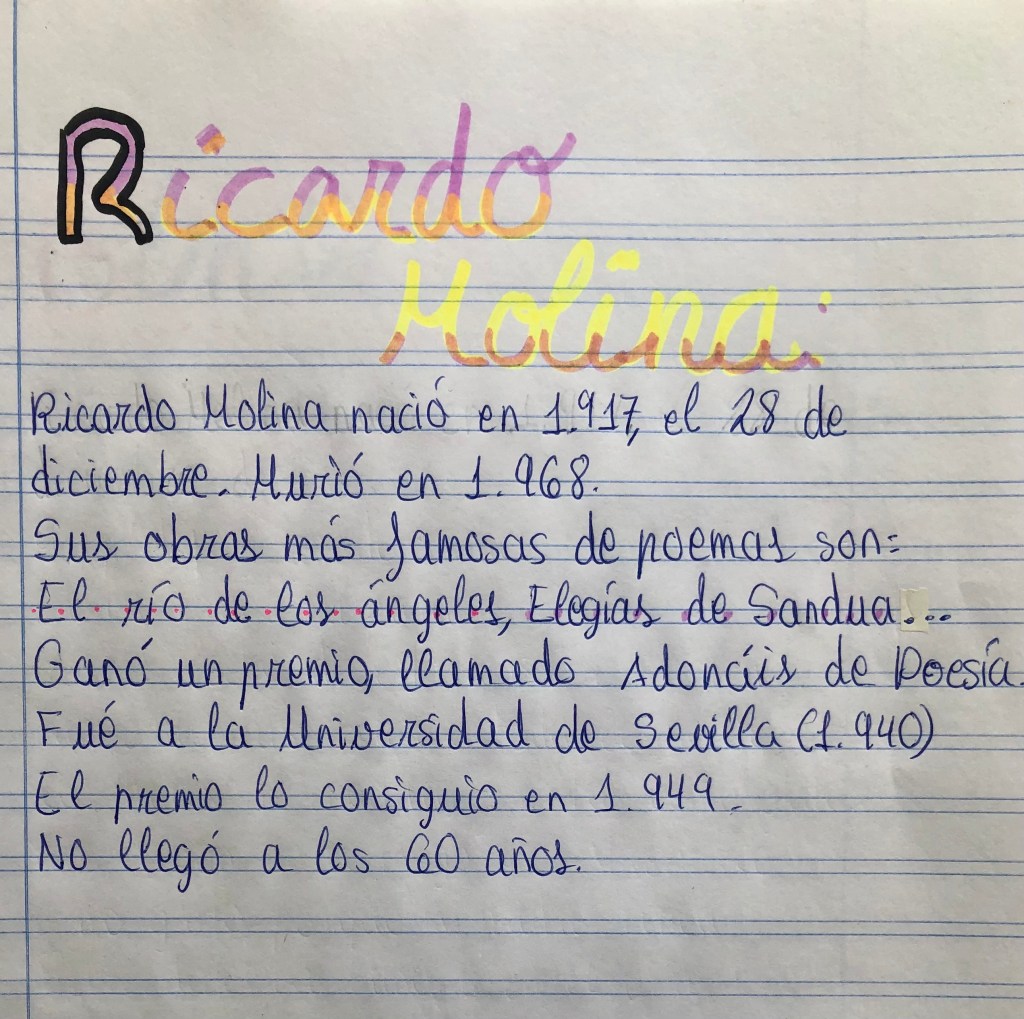 Ricardo
Molina.
Ricardo Molina nació en 1.917, el 28 de
diciembre. Murió en 1.968.
Sus obras más famosas de poemas son:
El río de los ángeles, Elegías de Sandua...
Ganó un premio, llamado Adonáis de Poesía.
Fué a la Universidad de Sevilla (1.940)
El premio lo consiguio en 1.949.
No llegó a los 60 años.